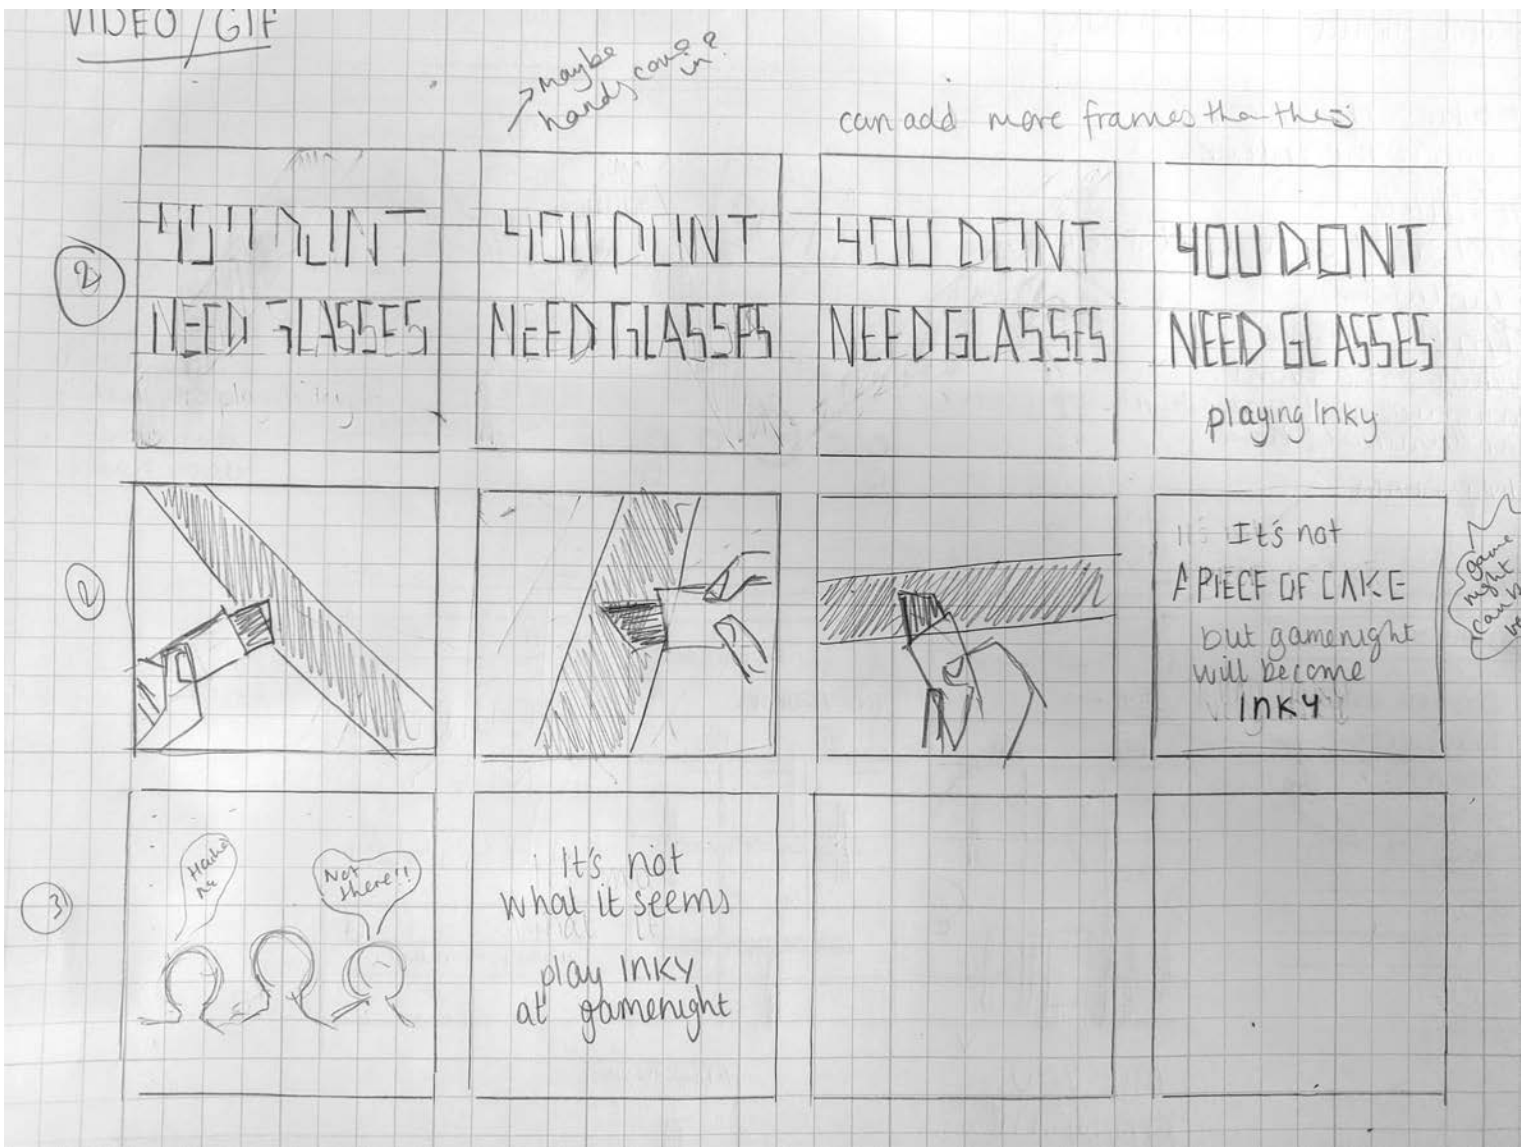 VIDEO/GIF
→ maybe
hands come in?
can add more frames than this
2
YOU DONT
NEED GLASSES
YOU DONT
NEED GLASSES
YOU DONT
NEED GLASSES
YOU DONT
NEED GLASSES
playing Inky
2
It's not
A PIECE OF CAKE
but gamenight
will become
INKY
game
night
can
be
3
Haha
Not
there!!
It's not
what it seems
play INKY
at gamenight